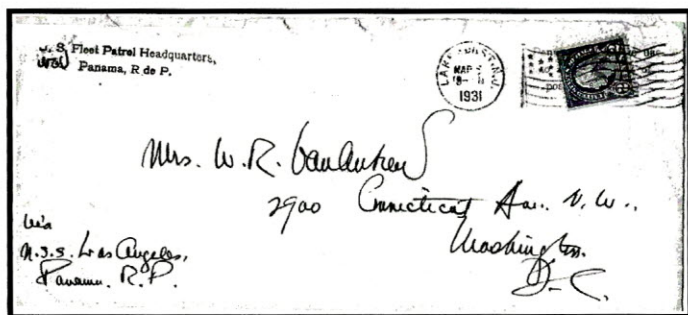 U. S. Fleet Patrol Headquarters,
Panama, R de P.
LAKEHURST, N.J.
MAR
1931
Mrs. W. R. VanAuken
2900 Connecticut Av. N. W.,
Washington
D.C.
via
U.S.S. Los Angeles,
Panama. R.P.